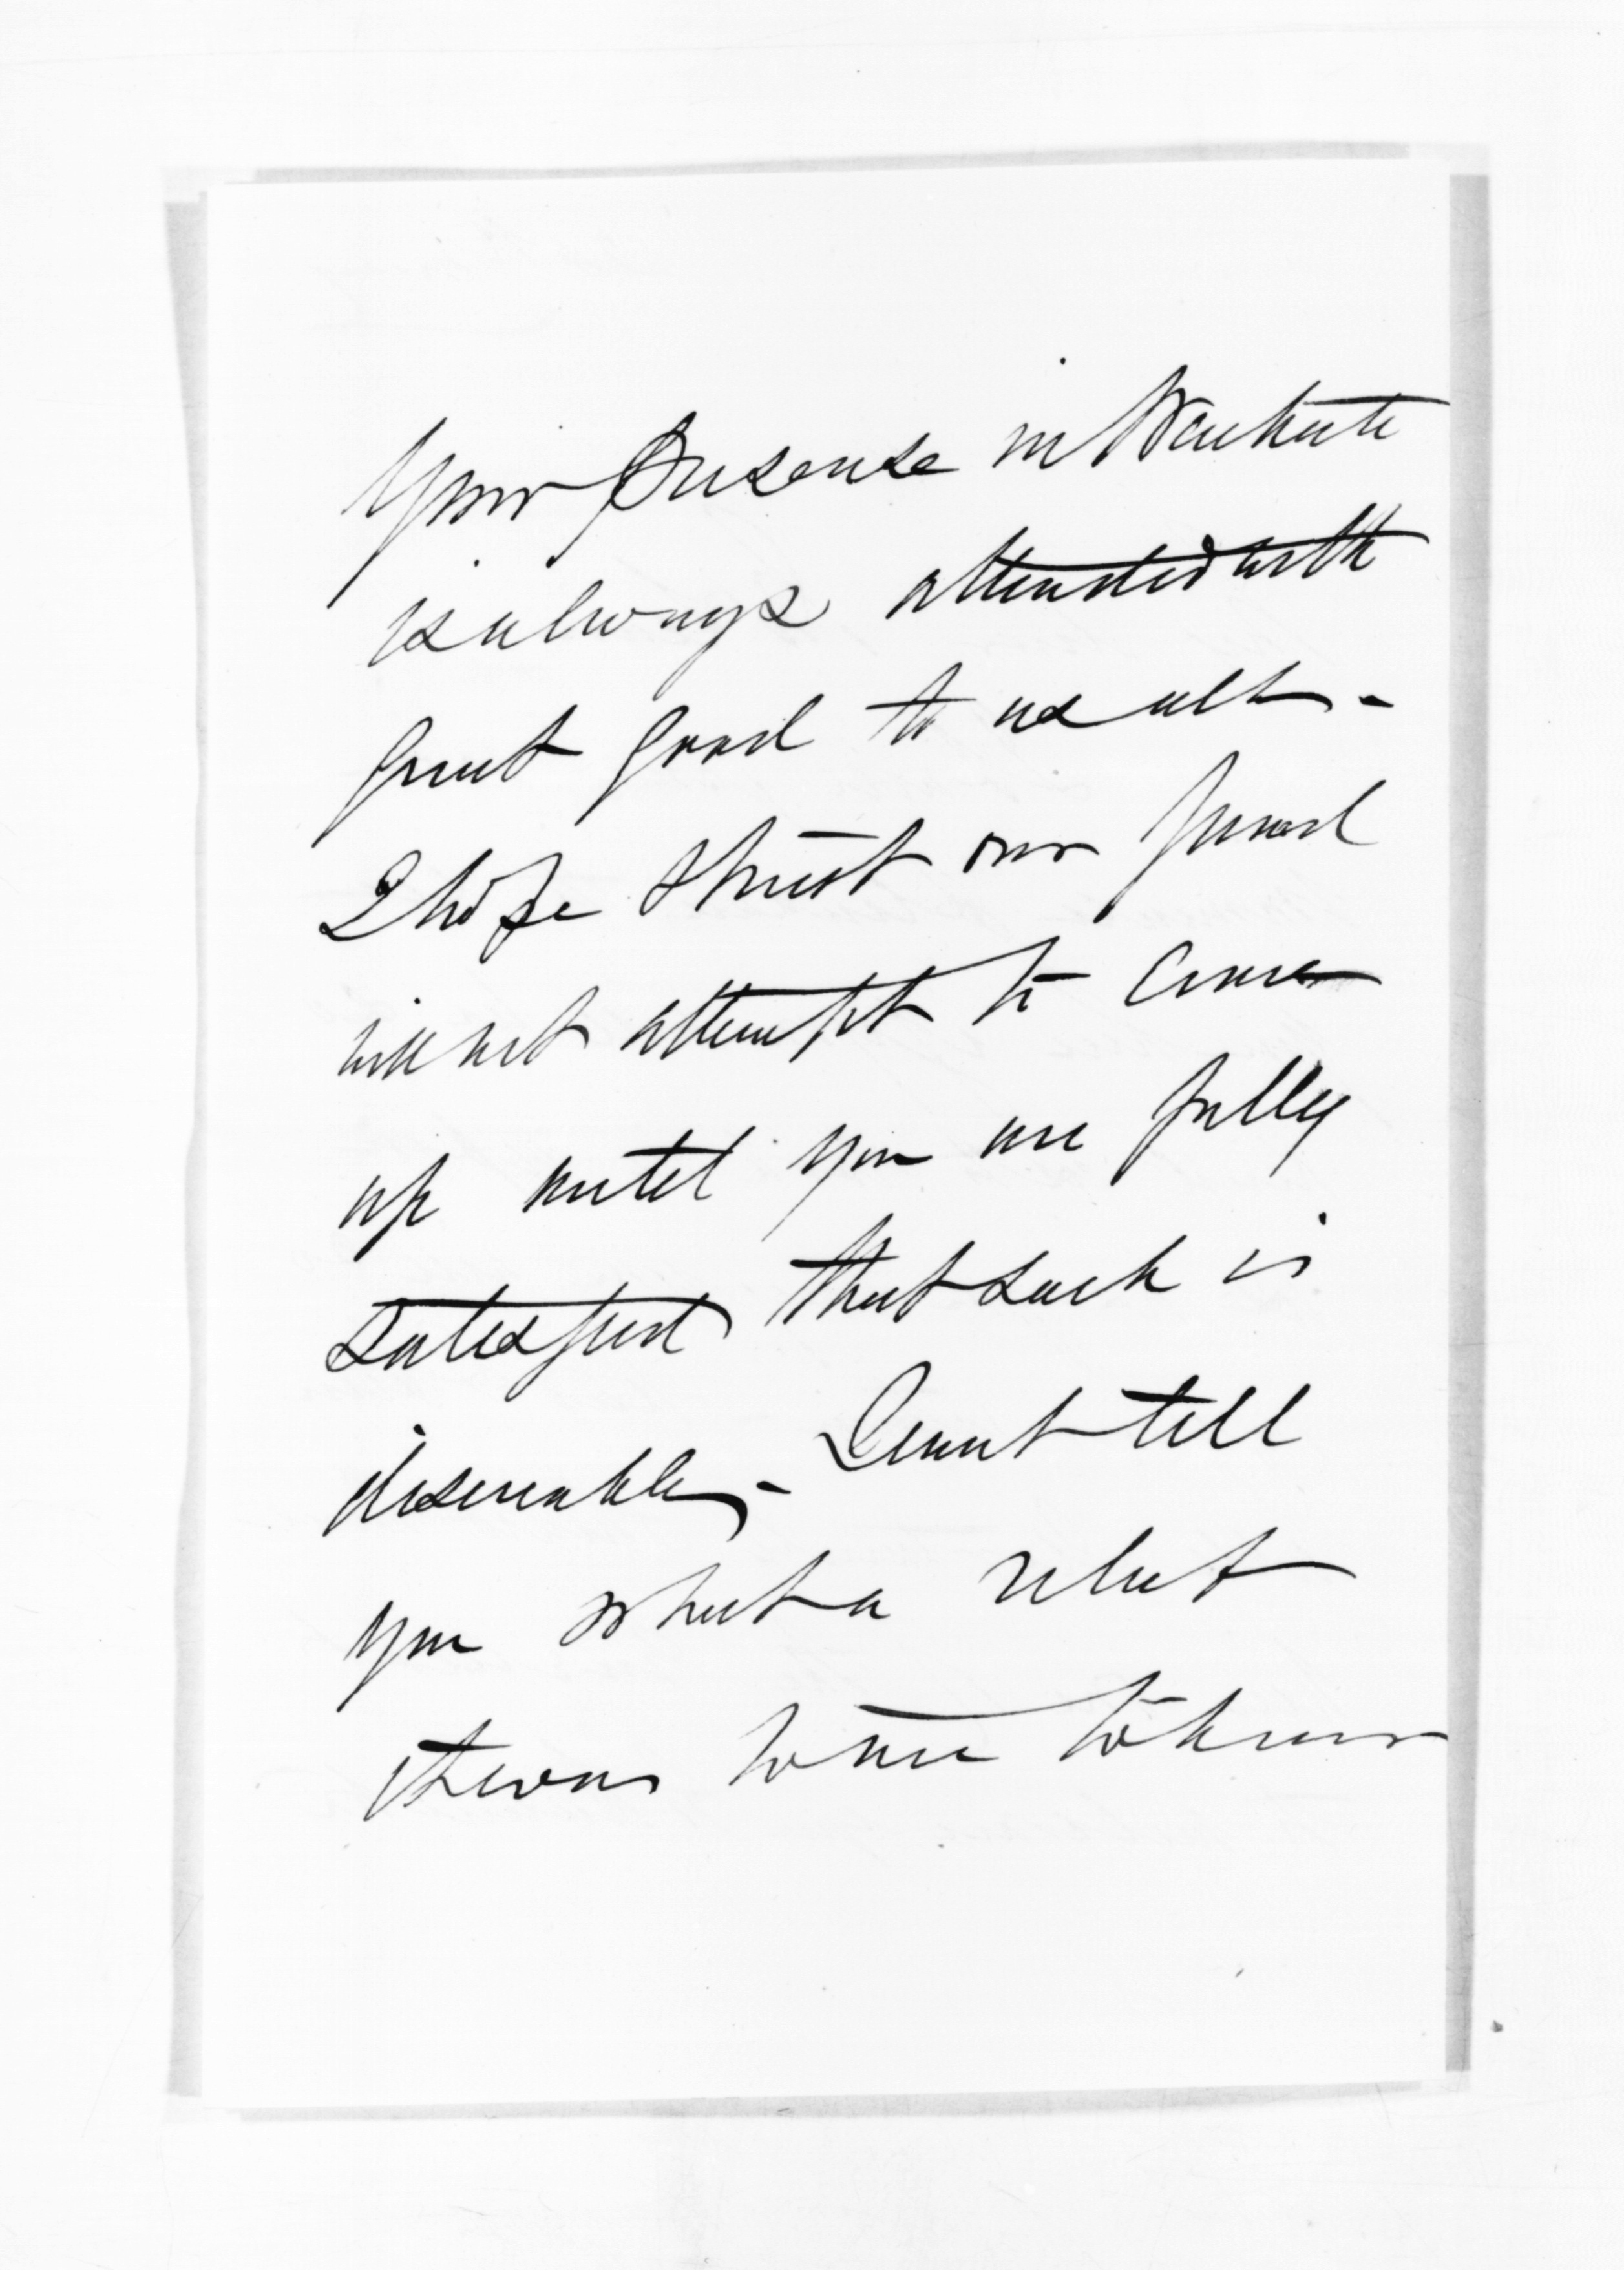 Your Presense in
is always attended with
great good to us all -
I hope & trust our friend
will not attempt to come
up until you are fully
satisfied that such is
desireable, - I cannot tell
you what a relief
it was to me to know